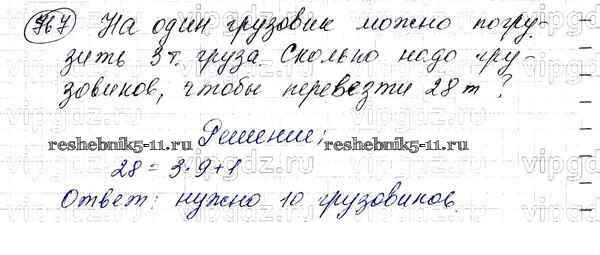 767 На один грузовик можно погру-
зить 3 т. груза. Сколько надо гру-
зовиков, чтобы перевезти 28 т?
Решение:
reshebnik5-11.ru reshebnik5-11.ru
28 = 3·9+1
Ответ: нужно 10 грузовиков.